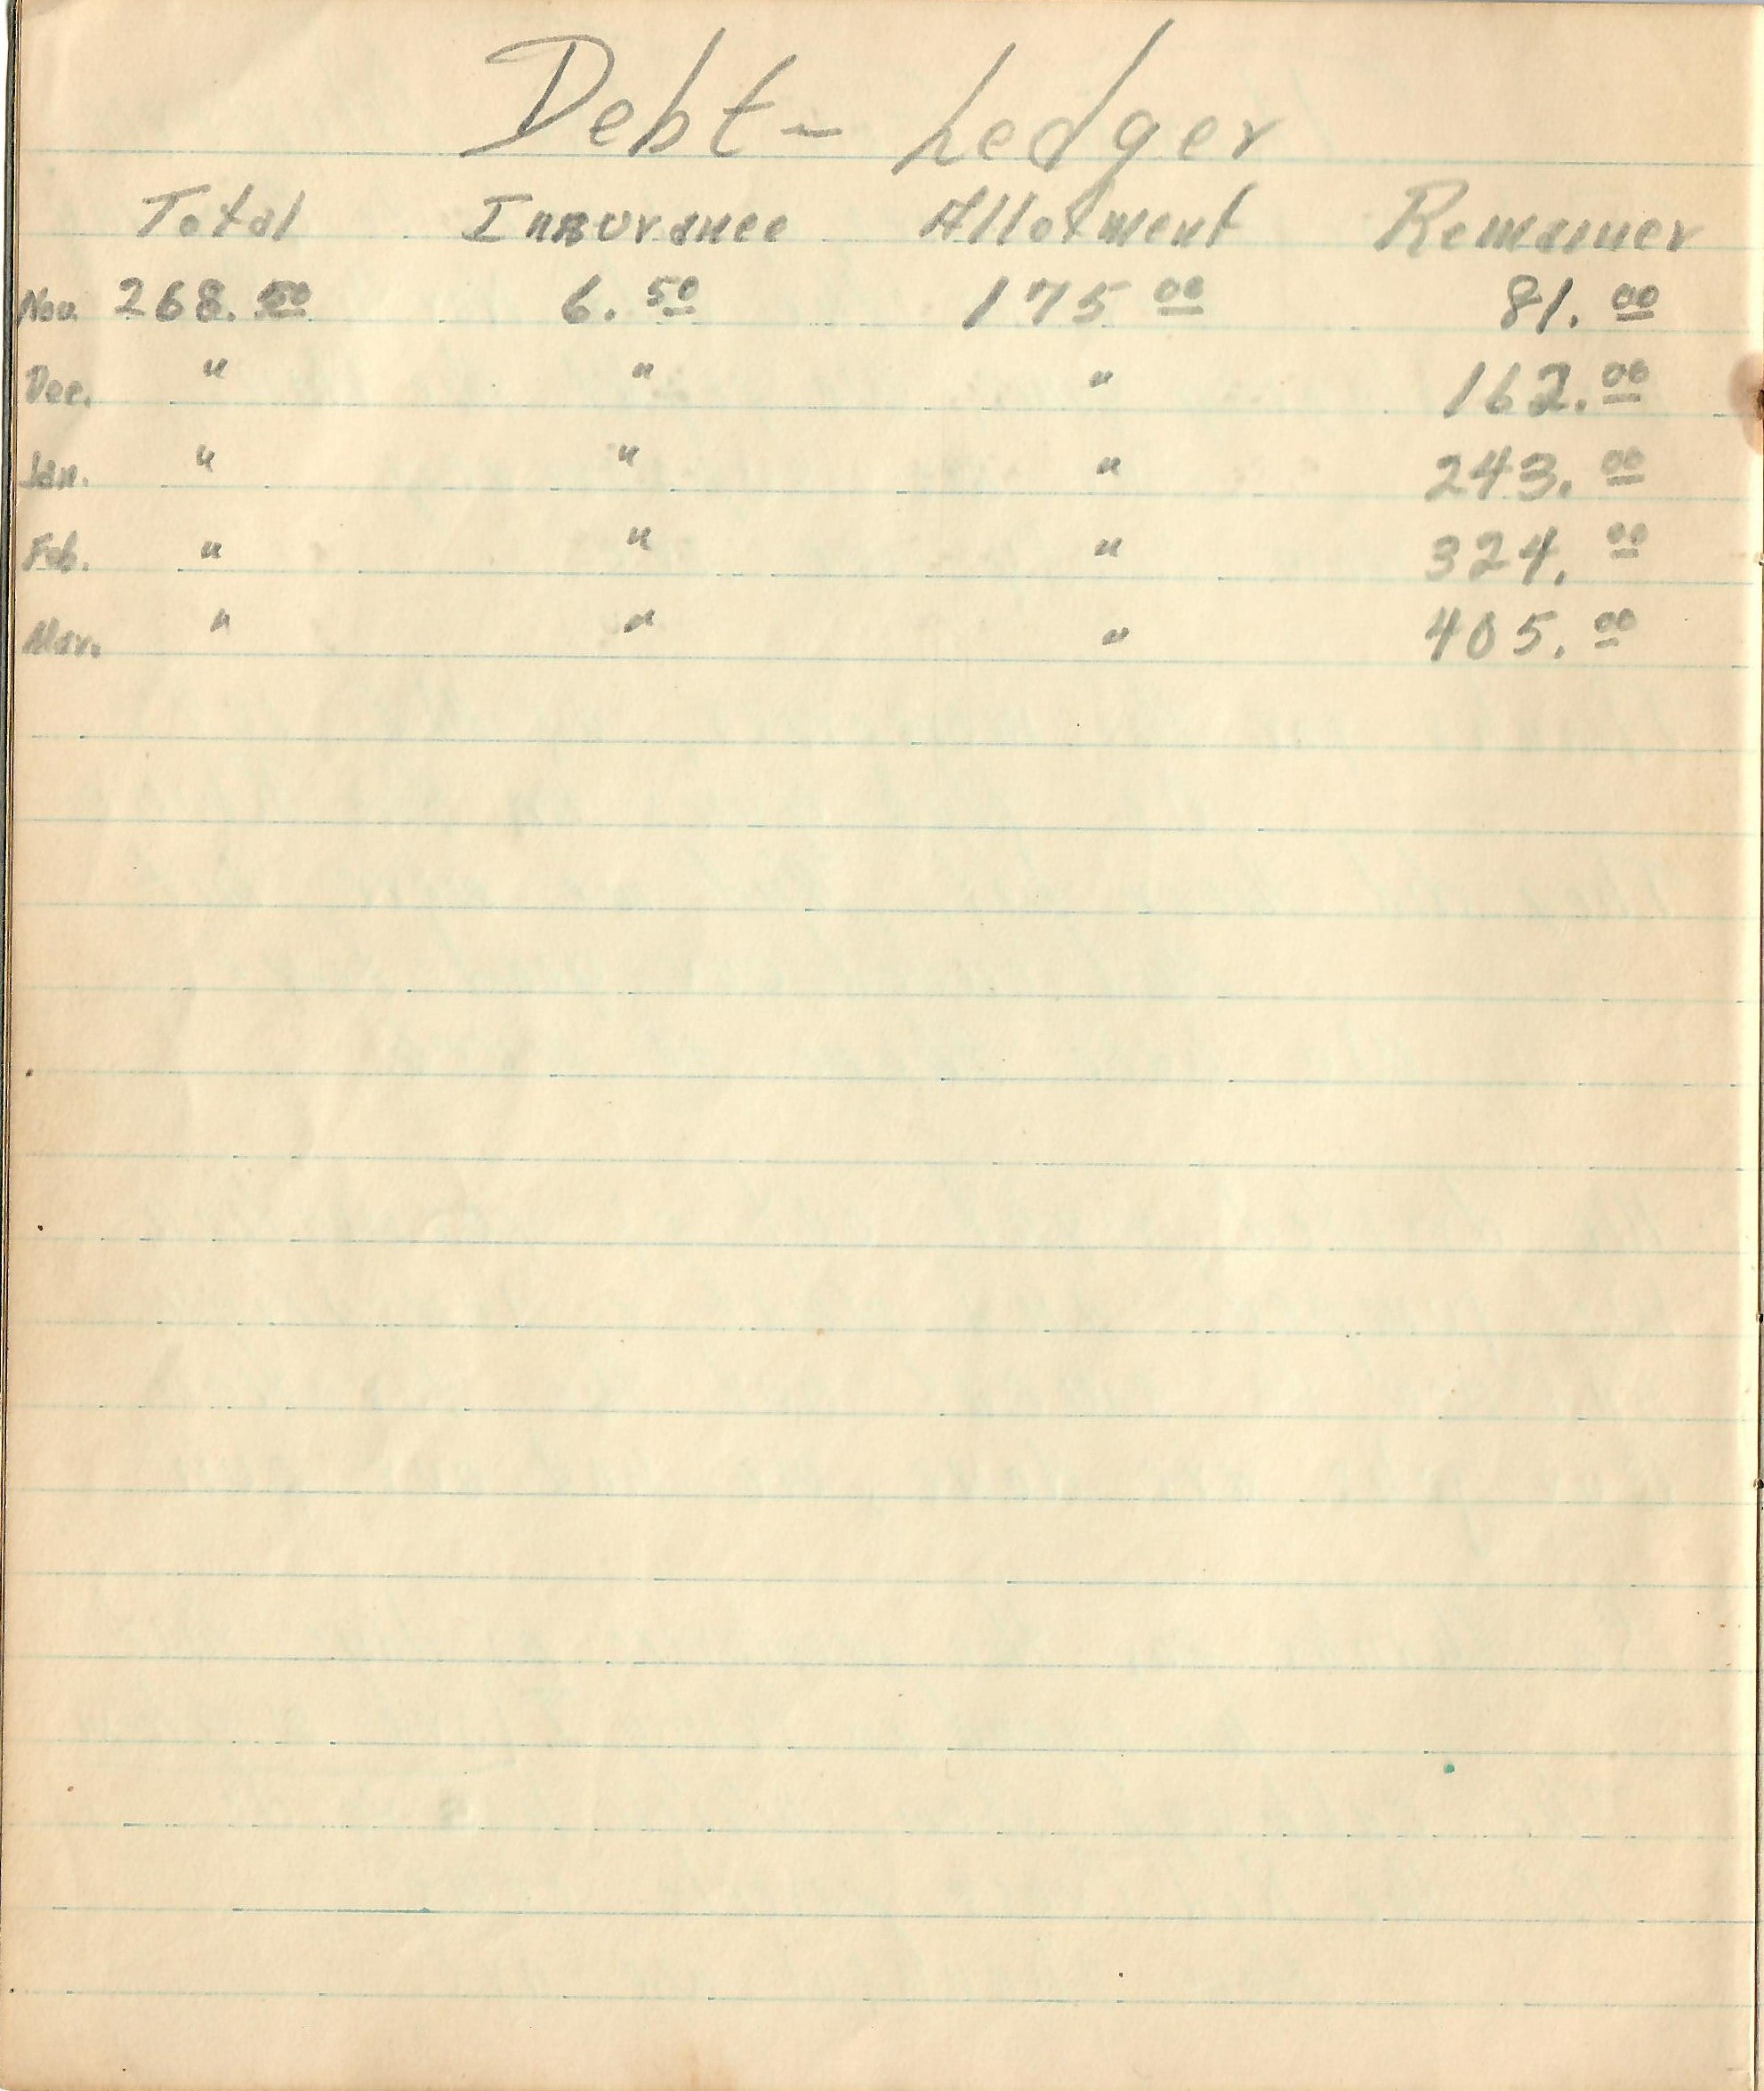 Debt- Ledger
Total Insurance Allotment Remainer
Nov. 268.50 6.50 175 00 81.00
Dec. " " " 162.00
Jan. " " " 243.00
Feb. " " " 324.00
Mar. " " " 405.00